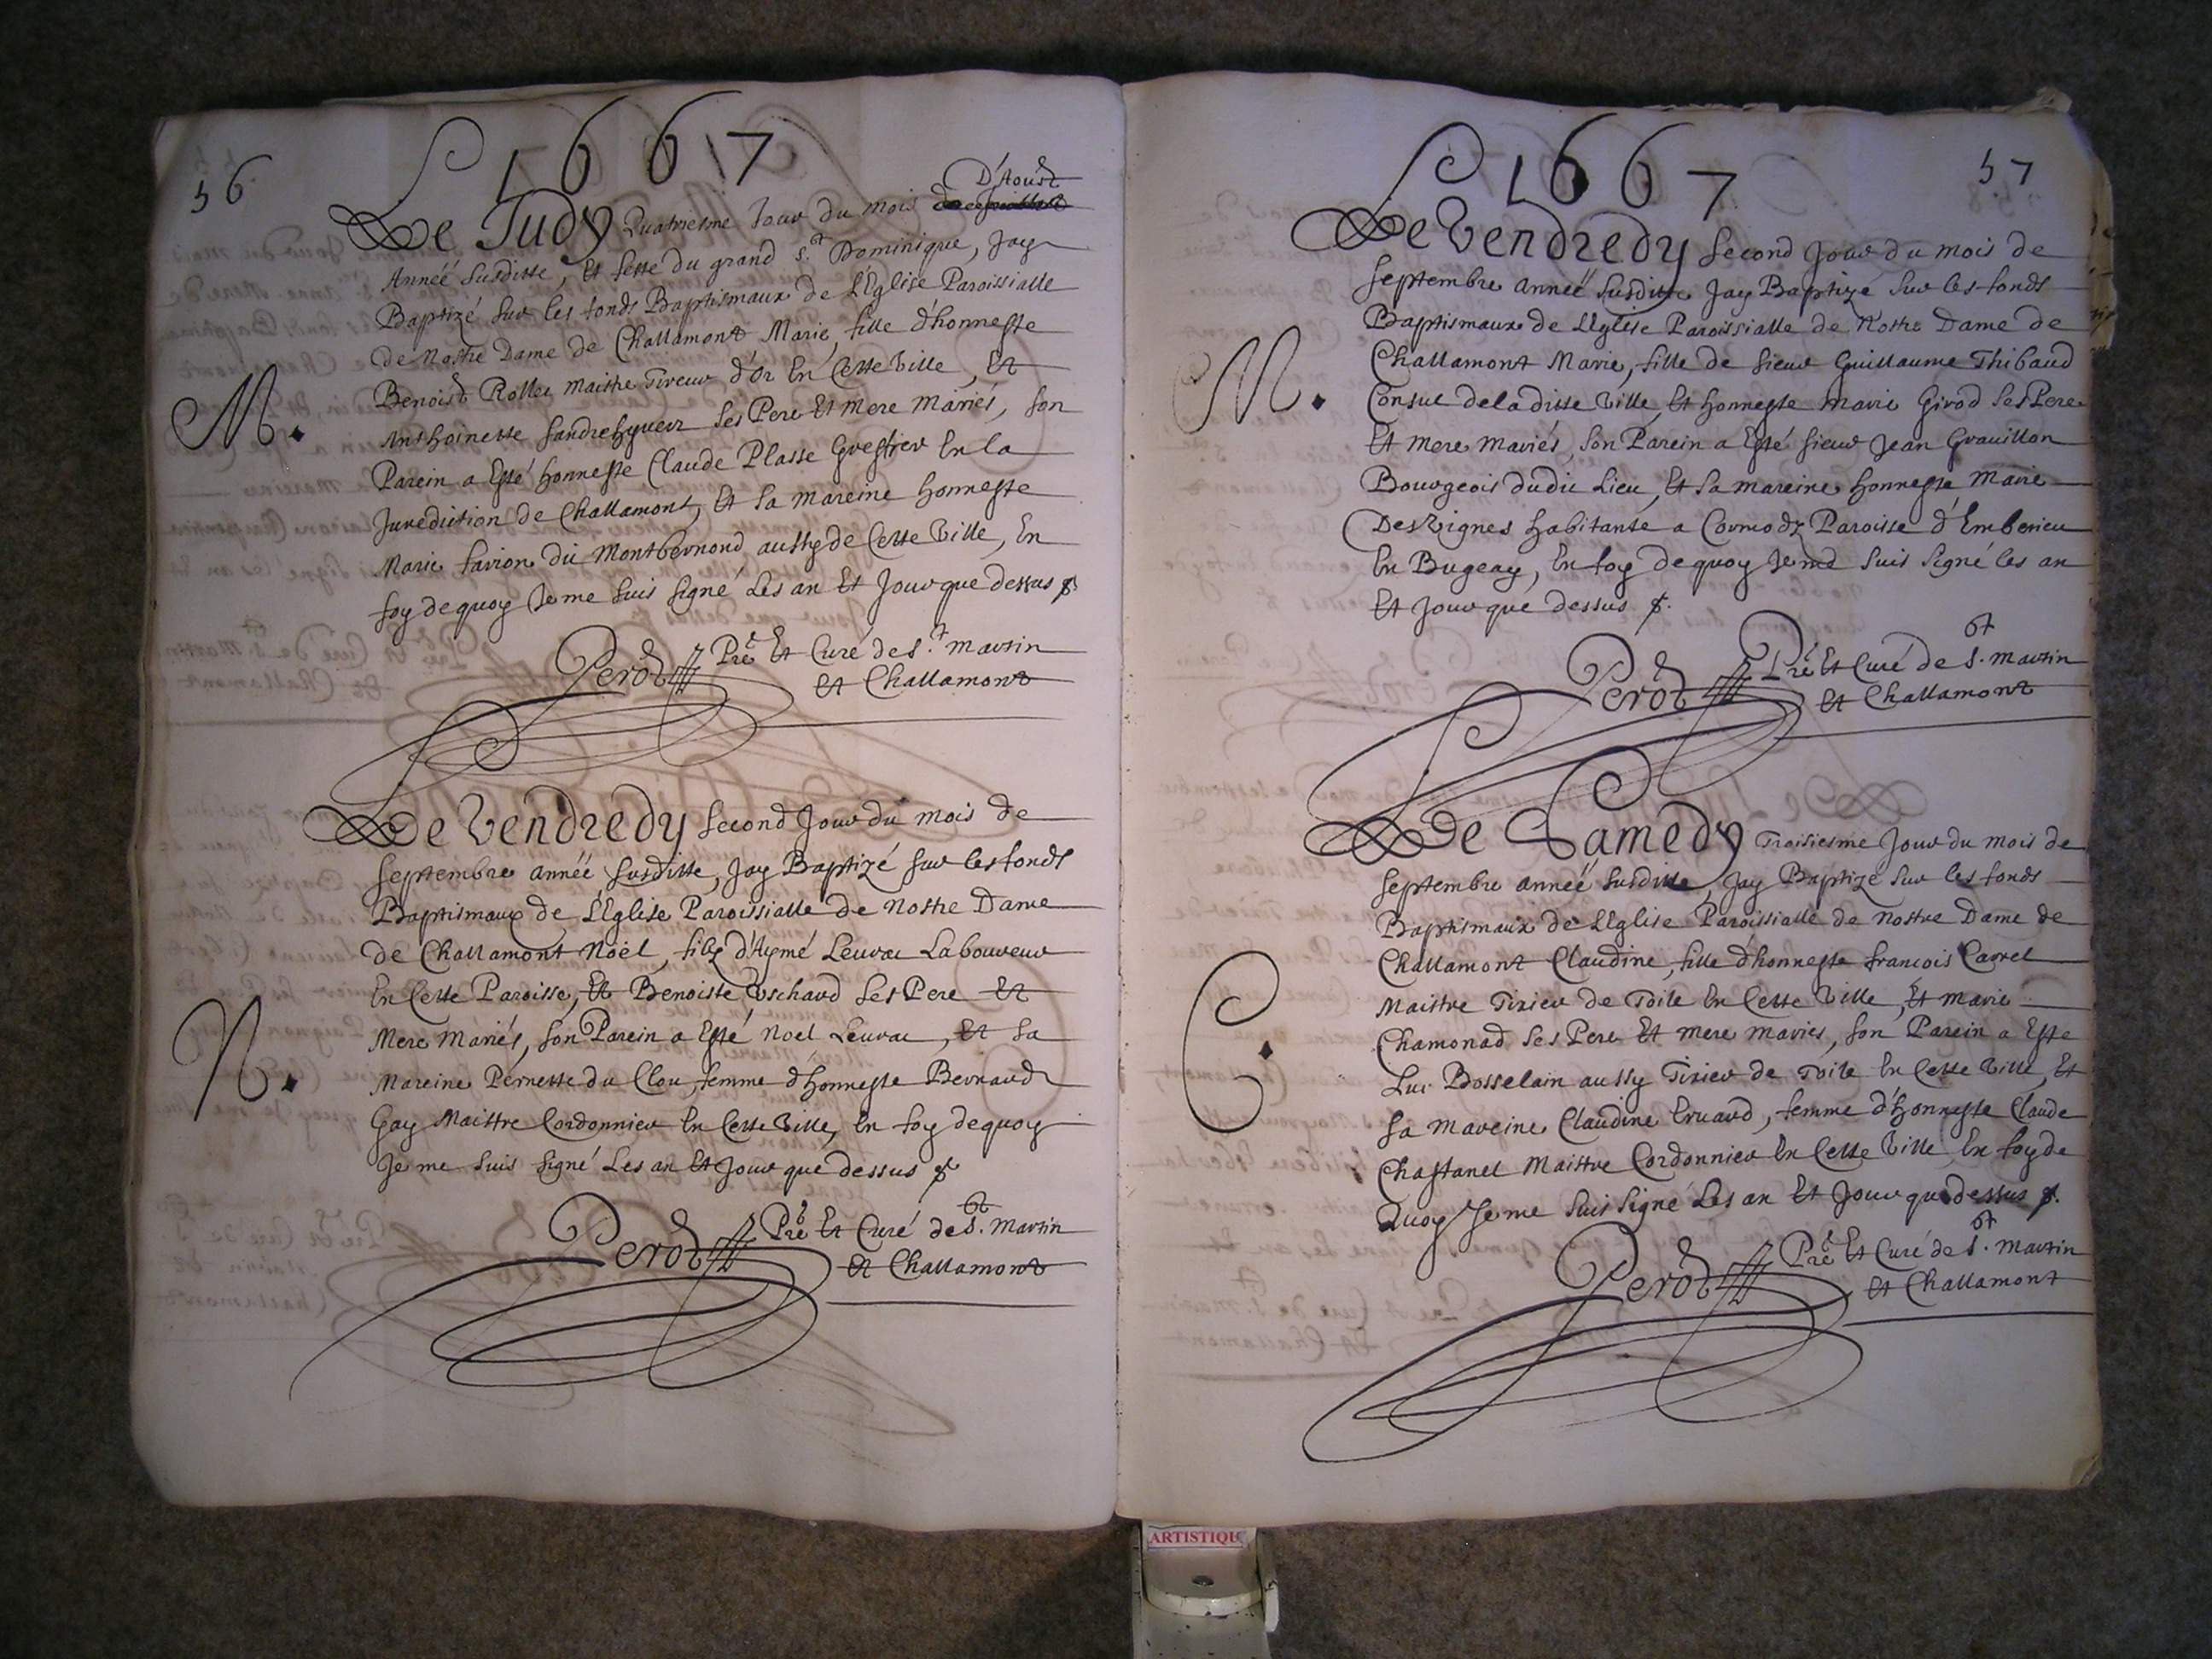 56
1667
Le Judy Quatriesme Jour du mois D'Aoust
Année susditte, Et feste du grand St Dominique, Jay
Baptizé sur les fonds Baptismaux de L'Eglise Paroissialle
de Nostre Dame de Challamont Marie, fille d'honneste
Benoist Rollet Maistre Tireur d'Or En Cette Ville, Et
Anthoinette ses Pere Et Mere Mariés, son
Parein a Esté honneste Claude Plasse Greffier En la
Jurediction de Challamont, Et sa Mareine honneste
Marie favion du Montbernond aussy de Cette Ville, En
foy de quoy Je me suis signé Les an Et Jour que dessus
M.
Perod Pre Et Curé de St. Martin
Et Challamont
Le Vendredy second Jour du mois de
septembre année susditte, Jay Baptizé sur les fonds
Baptismaux de L'Eglise Paroissialle de Nostre Dame
de Challamont Noël, filz d'Aymé Leuvac Laboureur
En Cette Paroisse, Et Benoiste ses Pere Et
Mere Mariés, son Parein a Esté Noel Leuvac, Et sa
Mareine Pernette du Clou femme d'honneste Bernard
Gay Maistre Cordonnier En Cette Ville, En foy de quoy
Je me suis signé Les an Et Jour que dessus
N.
Perod Pre Et Curé de St. Martin
Et Challamont
57
1667
Le Vendredy second Jour du mois de
septembre année susditte Jay Baptizé sur les fonds
Baptismaux de L'Eglise Paroissialle de Nostre Dame de
Challamont Marie, fille de sieur Guillaume Thibaud
Consul de la ditte Ville, Et honneste Marie Girod ses Pere
Et mere mariés, son Parein a Esté sieur Jean Gravillon
Bourgeois dudit Lieu, Et sa mareine honneste Marie
Des Vignes habitante a Cormodz Paroisse d'Emberieu
En Bugeay, En foy de quoy Je me suis signé les an
Et Jour que dessus
M.
Perod Pre Et Curé de St. Martin
Et Challamont
Le Samedy Troisiesme Jour du mois de
septembre année susditte, Jay Baptizé sur les fonds
Baptismaux de L'Eglise Paroissialle de Nostre Dame de
Challamont Claudine, fille d'honneste francois Carrel
Maistre Tixier de Toile En Cette Ville, Et Marie
Chamonad ses Pere Et Mere Mariés, son Parein a Esté
Luc Bosselain aussy Tixier de Toile En Cette Ville, Et
sa Mareine Claudine Eruard, femme d'honneste Claude
Chastanel Maistre Cordonnier En Cette Ville En foy de
Quoy Je me suis signé Les an Et Jour que dessus
C.
Perod Pre Et Curé de St. Martin
Et Challamont
ARTISTIQU